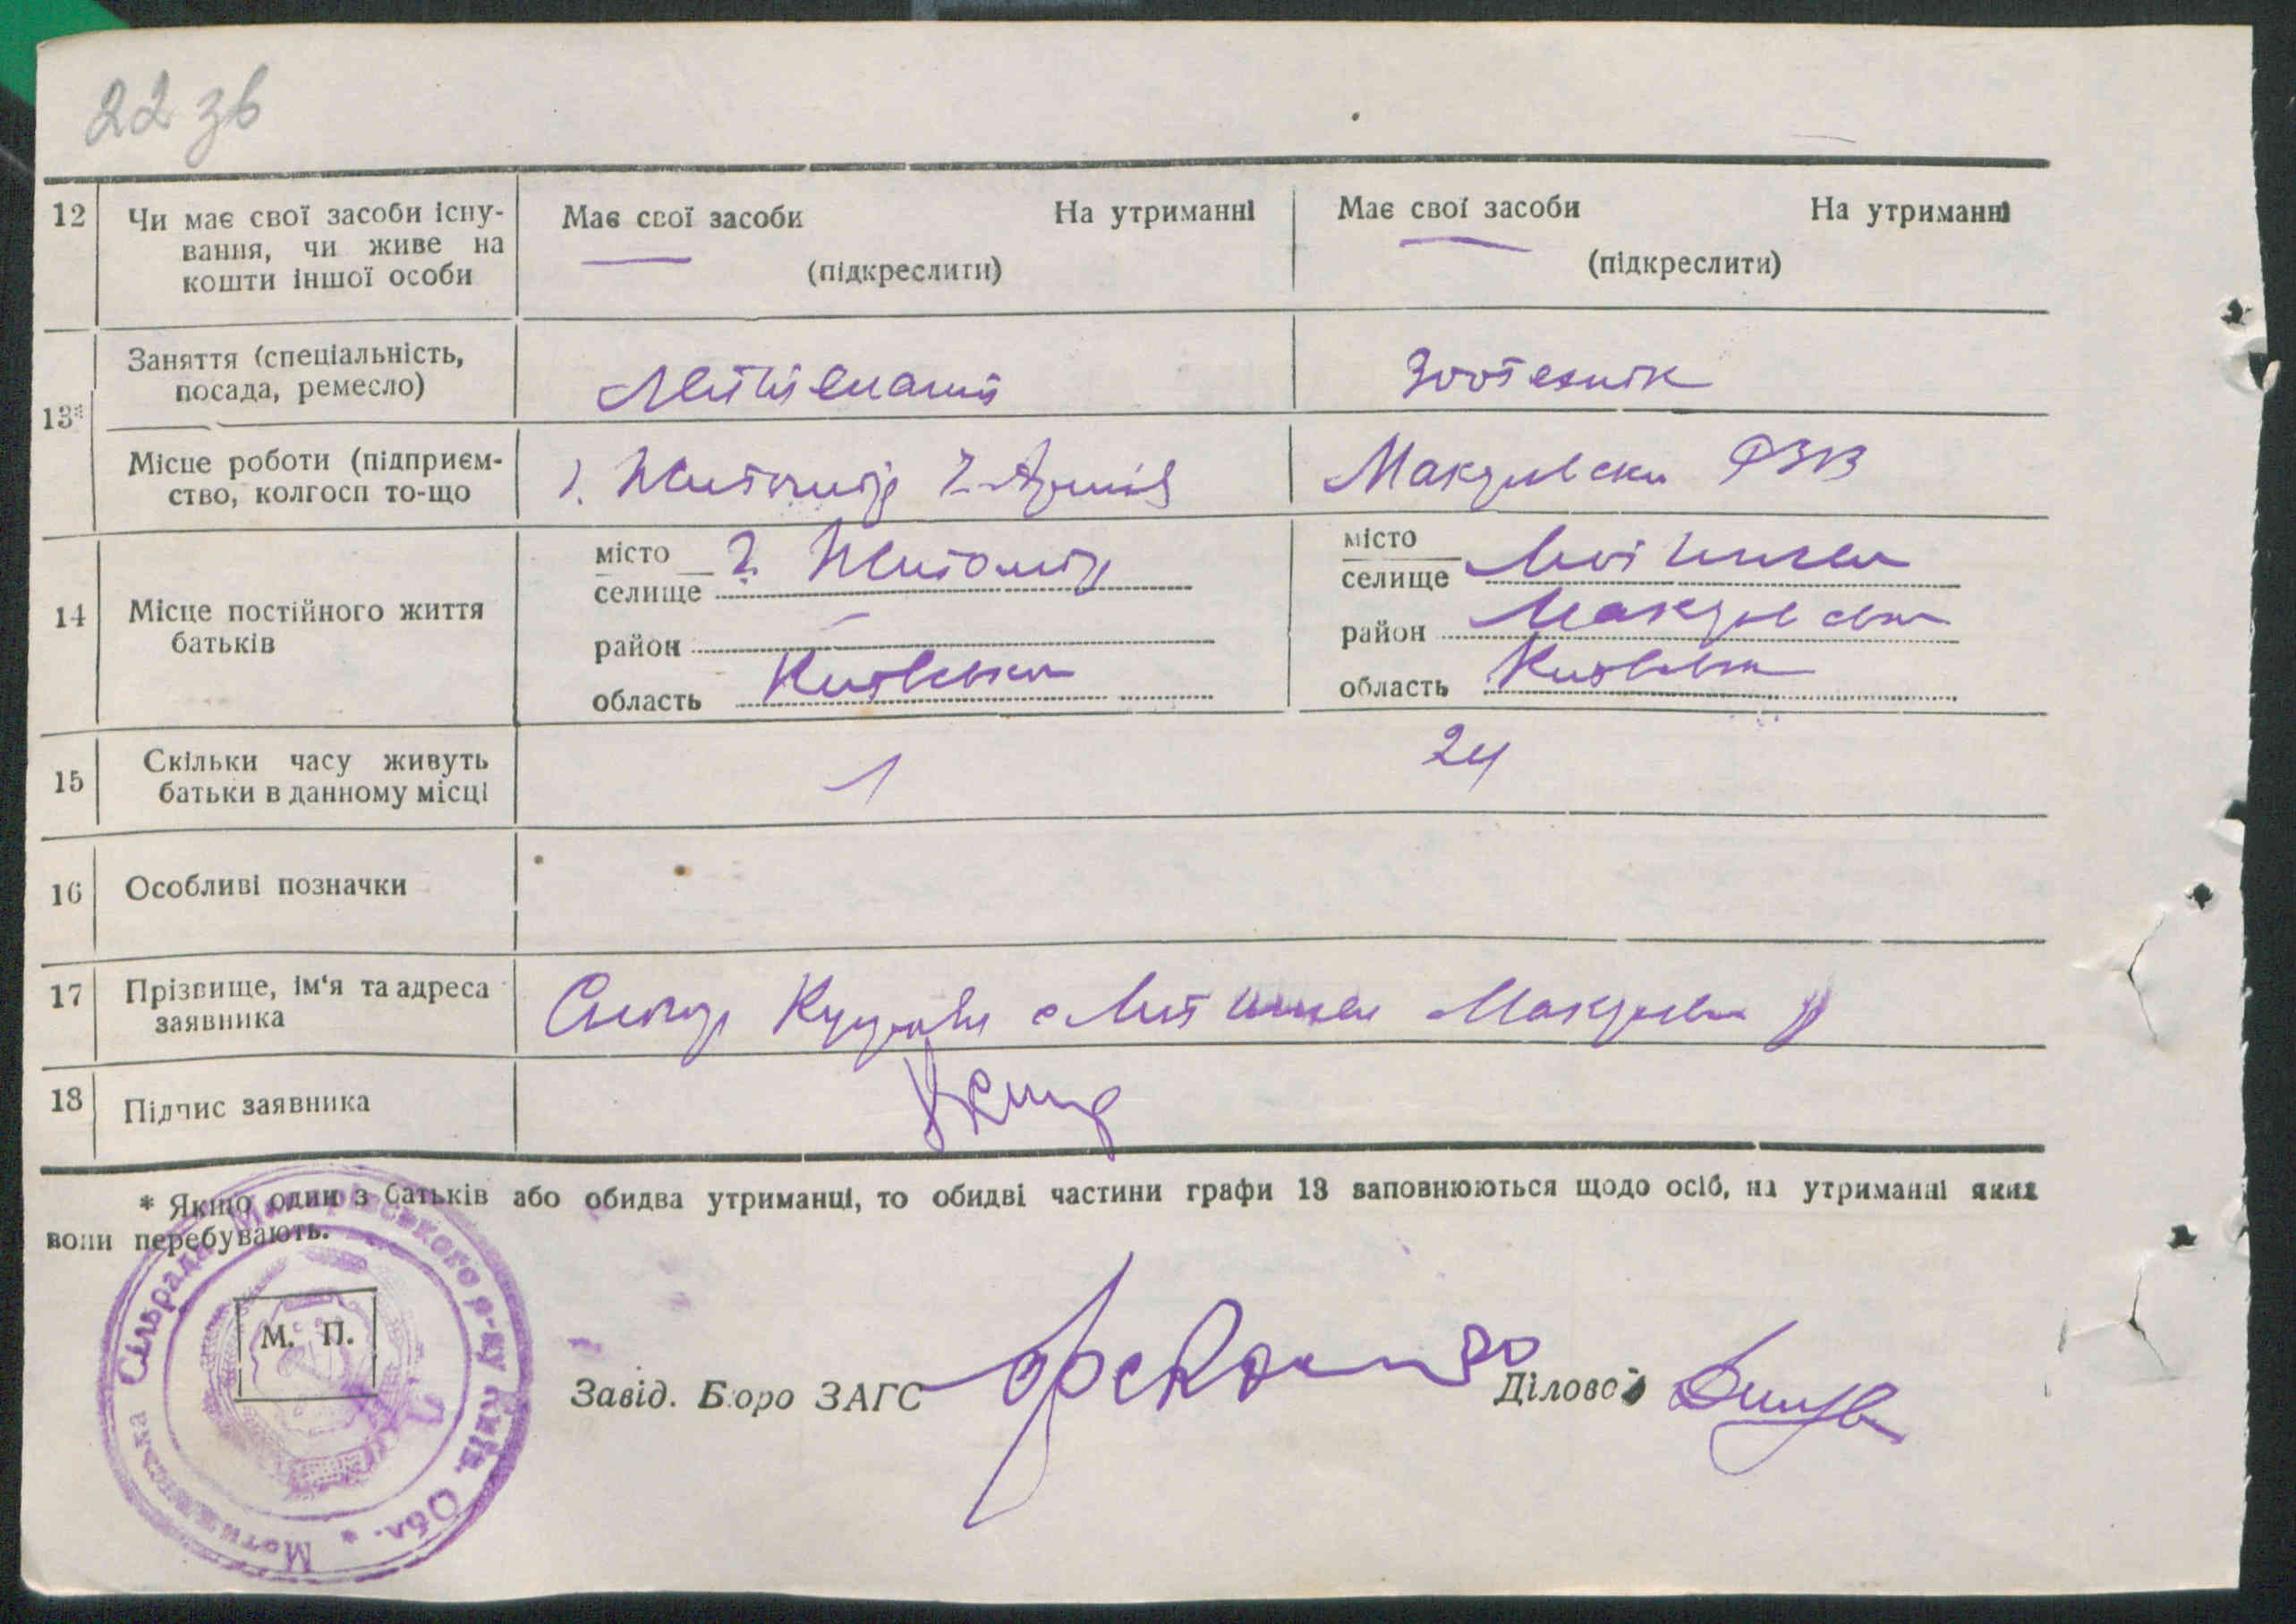 22 зв
12 Чи має свої засоби існу-
вання, чи живе на
кошти іншої особи
Має свої засоби На утриманні
(підкреслити)
Має свої засоби На утриманні
(підкреслити)
13*
Заняття (спеціальність,
посада, ремесло)
Зоотехнік
Місце роботи (підприєм-
ство, колгосп то-що
Житомир
Макарівськ
14 Місце постійного життя
батьків
місто
селище
г. Житомир
район –
область Київська
місто
селище
район Макарівськ
область Київська
15 Скільки часу живуть
батьки в данному місці
1
24
16 Особливі позначки
17 Прізвище, ім'я та адреса
заявника
Макарівськ р
18 Підпис заявника
* Якщо один з батьків або обидва утриманці, то обидві частини графи 13 заповнюються щодо осіб, на утриманні яких
вони перебувають.
М. П.
Мотижинська Сільрада Макарівського р-ну Київ. Обл. *
Завід. Бюро ЗАГС
Діловод